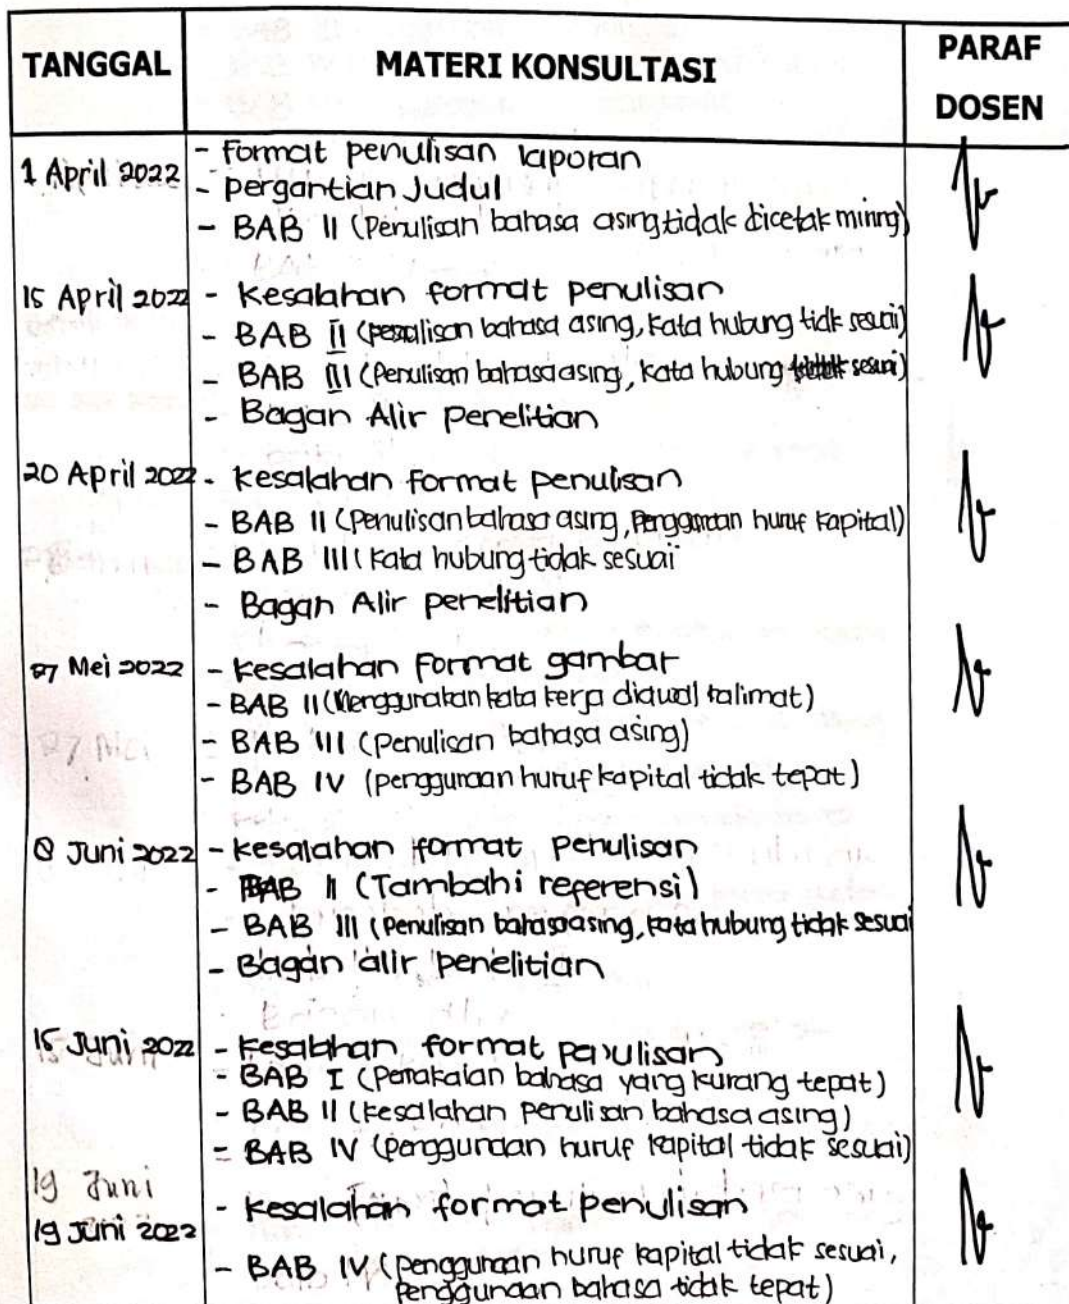 TANGGAL MATERI KONSULTASI PARAF DOSEN
1 April 2022
- Format penulisan laporan
- pergantian Judul
- BAB II (Penulisan bahasa asing tidak dicetak miring)
15 April 2022 - Kesalahan format penulisan
- BAB II (penulisan bahasa asing, kata hubung tidk sesuai)
- BAB III (Penulisan bahasa asing, kata hubung tidak sesuai)
- Bagan Alir Penelitian
20 April 2022 - kesalahan Format penulisan
- BAB II (Penulisan bahasa asing, Penggunaan huruf kapital)
- BAB III ( kata hubung tidak sesuai
- Bagan Alir penelitian
27 Mei 2022 - kesalahan Format gambar
- BAB II (Menggunakan kata kerja diawal kalimat)
- BAB III (penulisan bahasa asing)
- BAB IV (penggunaan huruf kapital tidak tepat)
Juni 2022 - kesalahan format penulisan
- BAB II (Tambahi referensi)
- BAB III (penulisan bahasa asing, kata hubung tidak sesuai
- Bagan alir penelitian
15 Juni 2022 - kesalahan format penulisan
- BAB I (Pemakaian bahasa yang kurang tepat)
- BAB II (kesalahan penulisan bahasa asing)
- BAB IV (penggunaan huruf kapital tidak sesuai)
19 Juni
19 Juni 2022 - kesalahan format penulisan
- BAB IV (penggunaan huruf kapital tidak sesuai,
penggunaan bahasa tidak tepat)